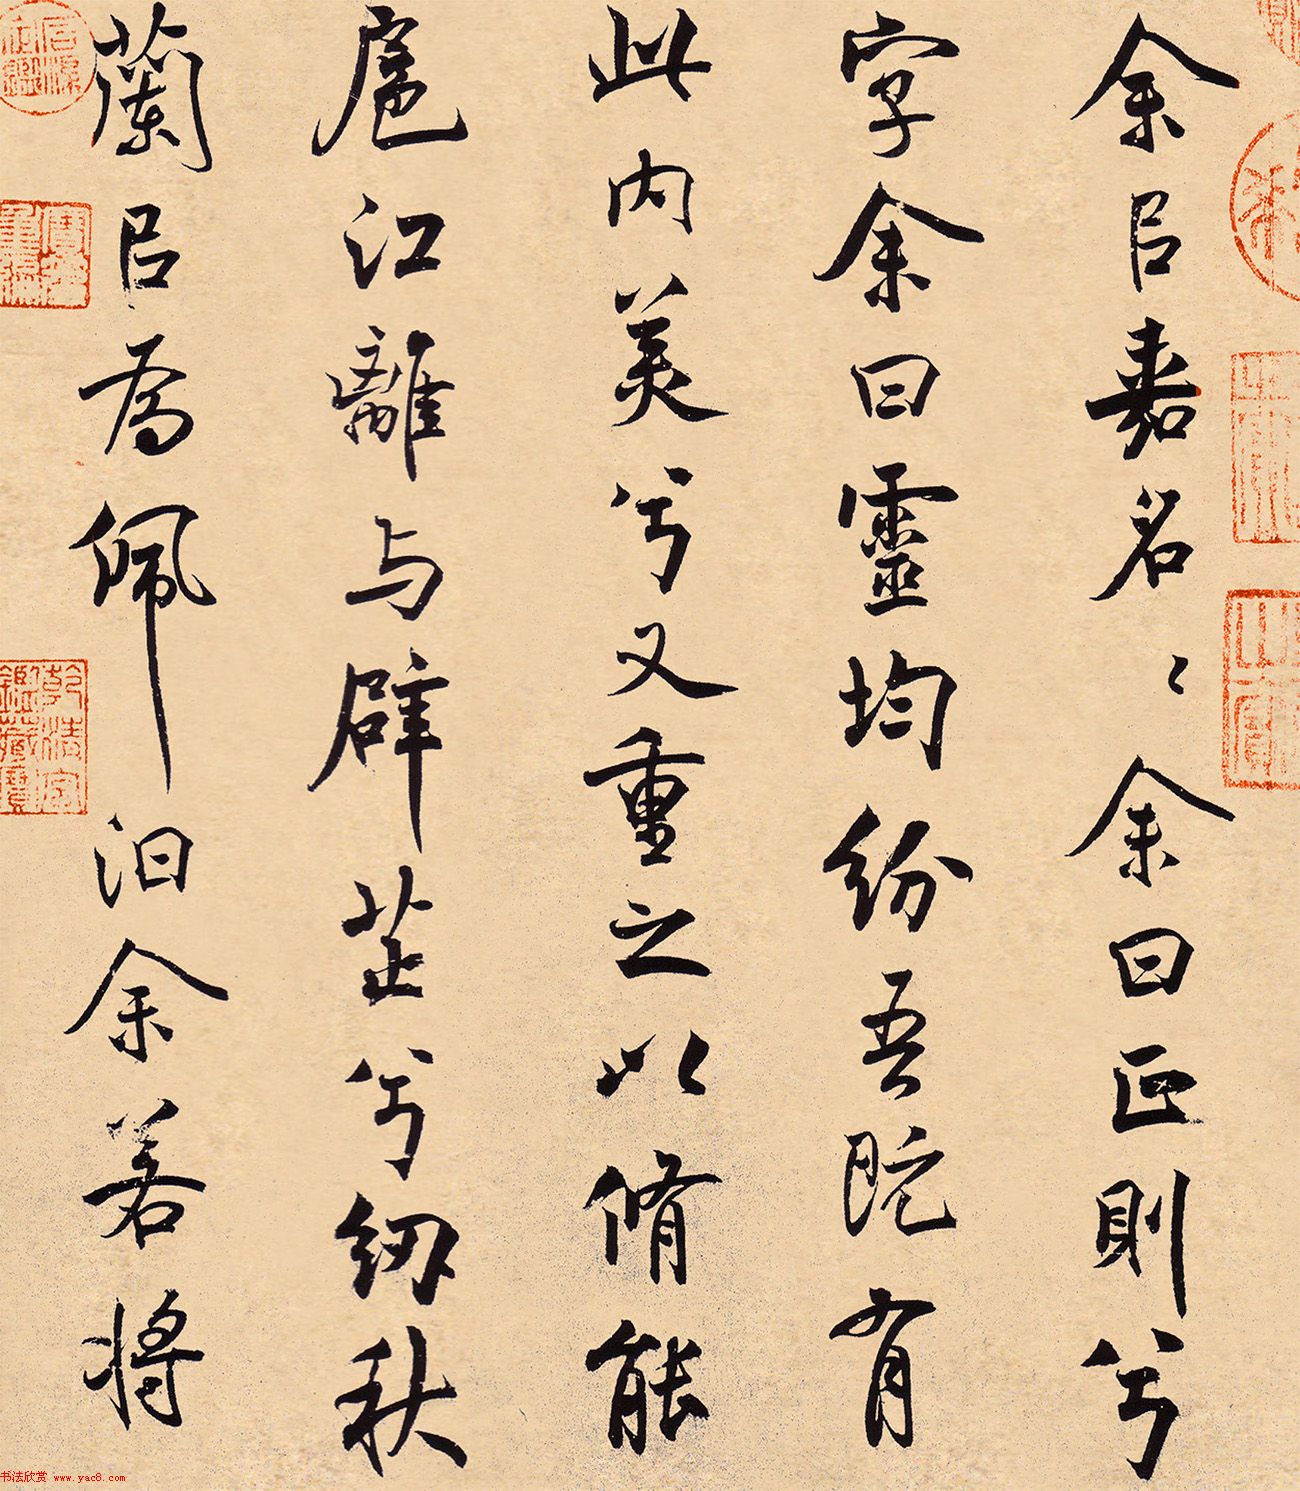 余㠯嘉名〻余曰正則兮
字余曰靈均紛吾既有
此內美兮又重之以脩能
扈江離与辟芷兮紉秋
蘭㠯為佩汩余若將
乾清宮鑑藏寶
书法欣赏 www.yac8.com